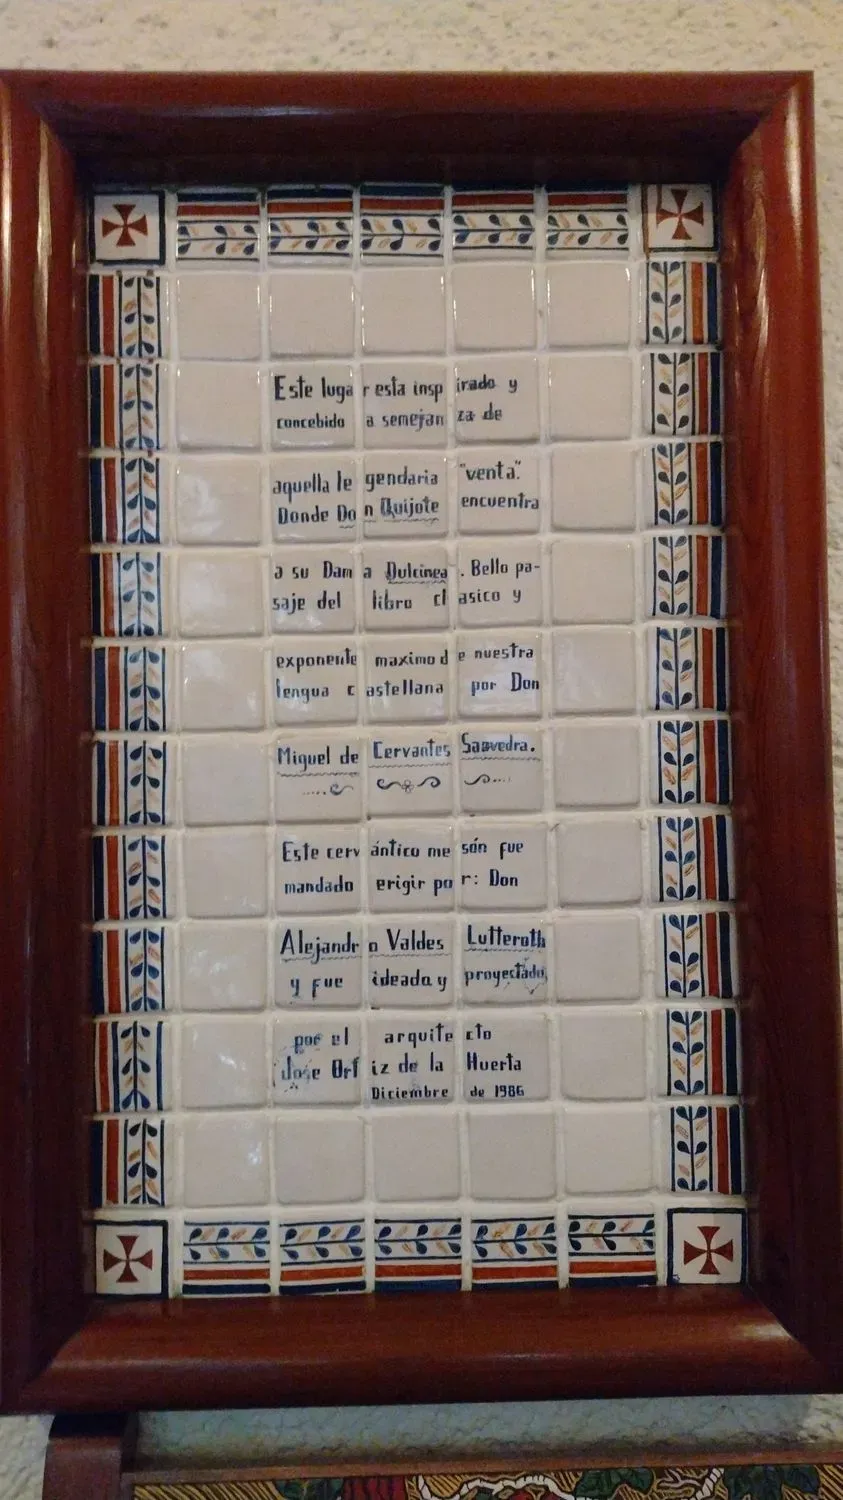 Este lugar esta inspirado y
concebido a semejanza de
aquella legendaria "venta".
Donde Don Quijote encuentra
a su Dama Dulcinea. Bello pa-
saje del libro clasico y
exponente maximo de nuestra
lengua castellana por Don
Miguel de Cervantes Saavedra.
Este cervántico mesón fue
mandado erigir por: Don
Alejandro Valdes Lutteroth
y fue ideada y proyectado,
por el arquitecto
Jose Ortiz de la Huerta
Diciembre de 1986